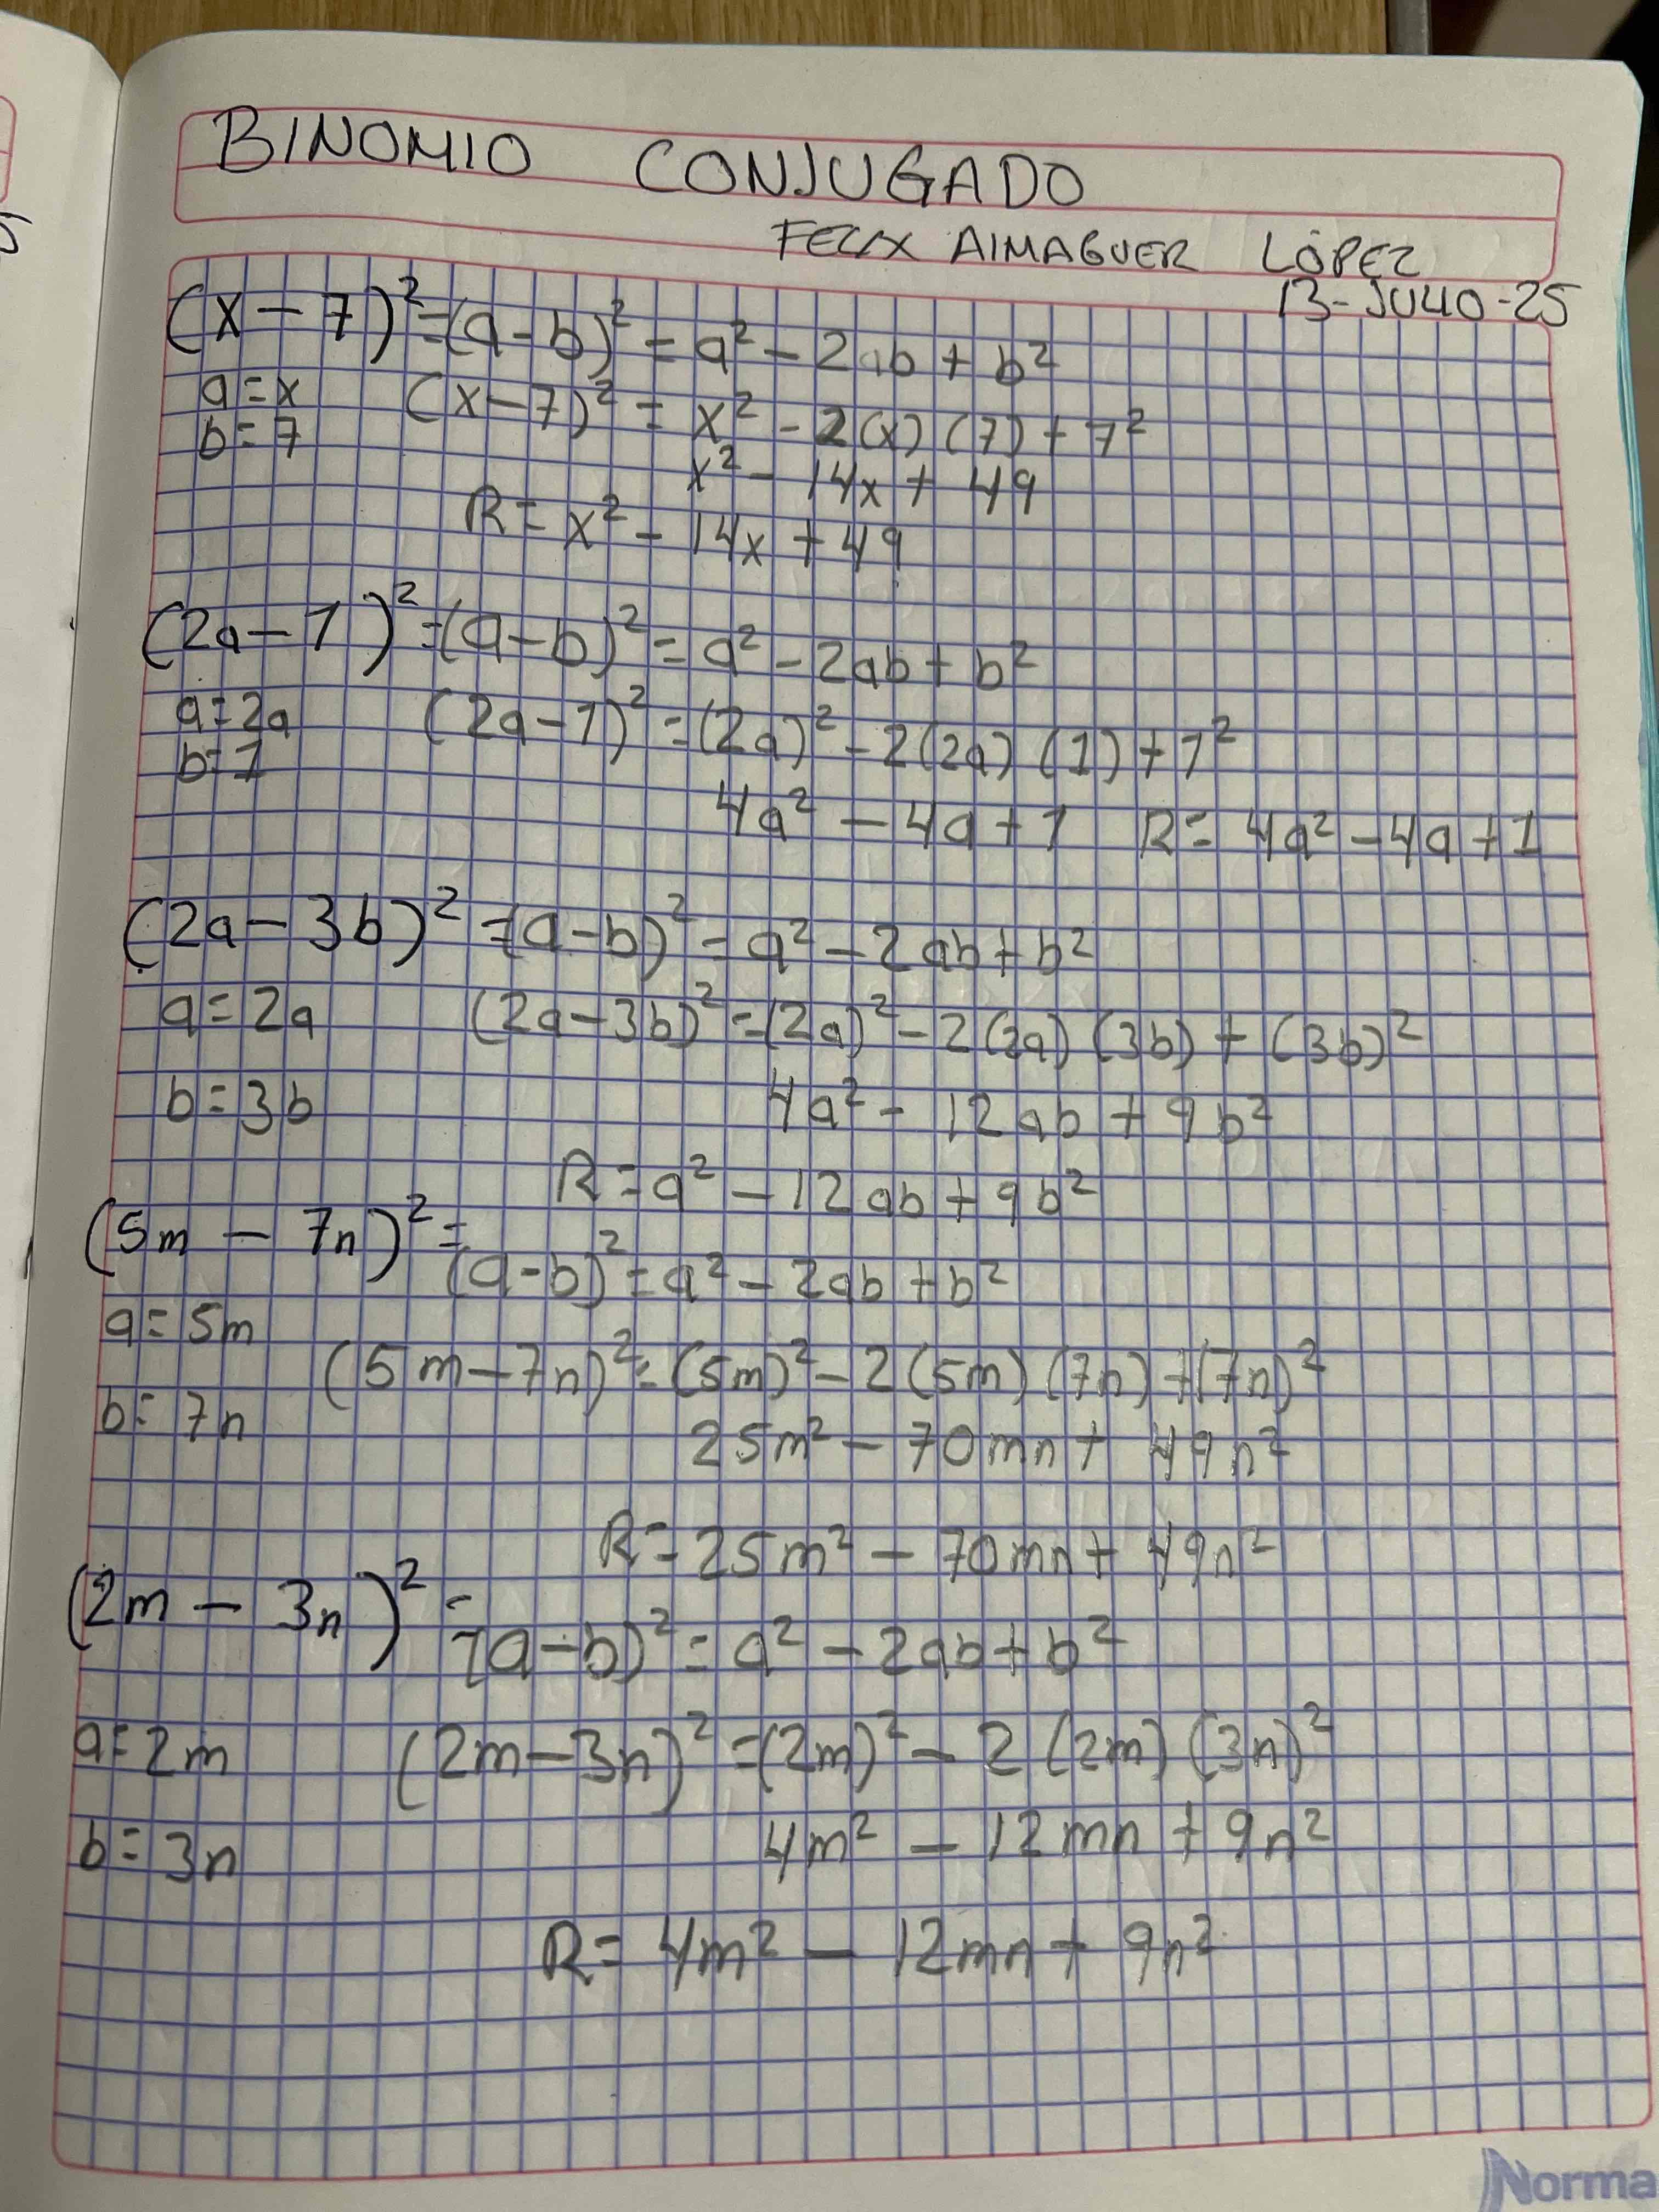 BINOMIO CONJUGADO
FELIX AlMAGUER LÓPEZ
13-JULIO-25
(x-7)² = (a-b)² = a² - 2ab + b²
a=x (x-7)² = x² - 2(x)(7) + 7²
b=7
x² - 14x + 49
R= x² - 14x + 49
(2a-1)² = (a-b)² = a² - 2ab + b²
a=2a (2a-1)² = (2a)² - 2(2a)(1) + 1²
b=1
4a² - 4a + 1 R= 4a² - 4a + 1
(2a-3b)² = (a-b)² = a² - 2ab + b²
a=2a (2a-3b)² = (2a)² - 2(2a)(3b) + (3b)²
b=3b 4a² - 12ab + 9b²
R= a² - 12ab + 9b²
(5m - 7n)² =
(a-b)² = a² - 2ab + b²
a=5m
(5m-7n)² = (5m)² - 2(5m)(7n) + (7n)²
b=7n 25m² - 70mn + 49n²
R= 25m² - 70mn + 49n²
(2m - 3n)² =
(a-b)² = a² - 2ab + b²
a=2m (2m-3n)² = (2m)² - 2(2m)(3n)²
b=3n 4m² - 12mn + 9n²
R= 4m² - 12mn + 9n²
Norma